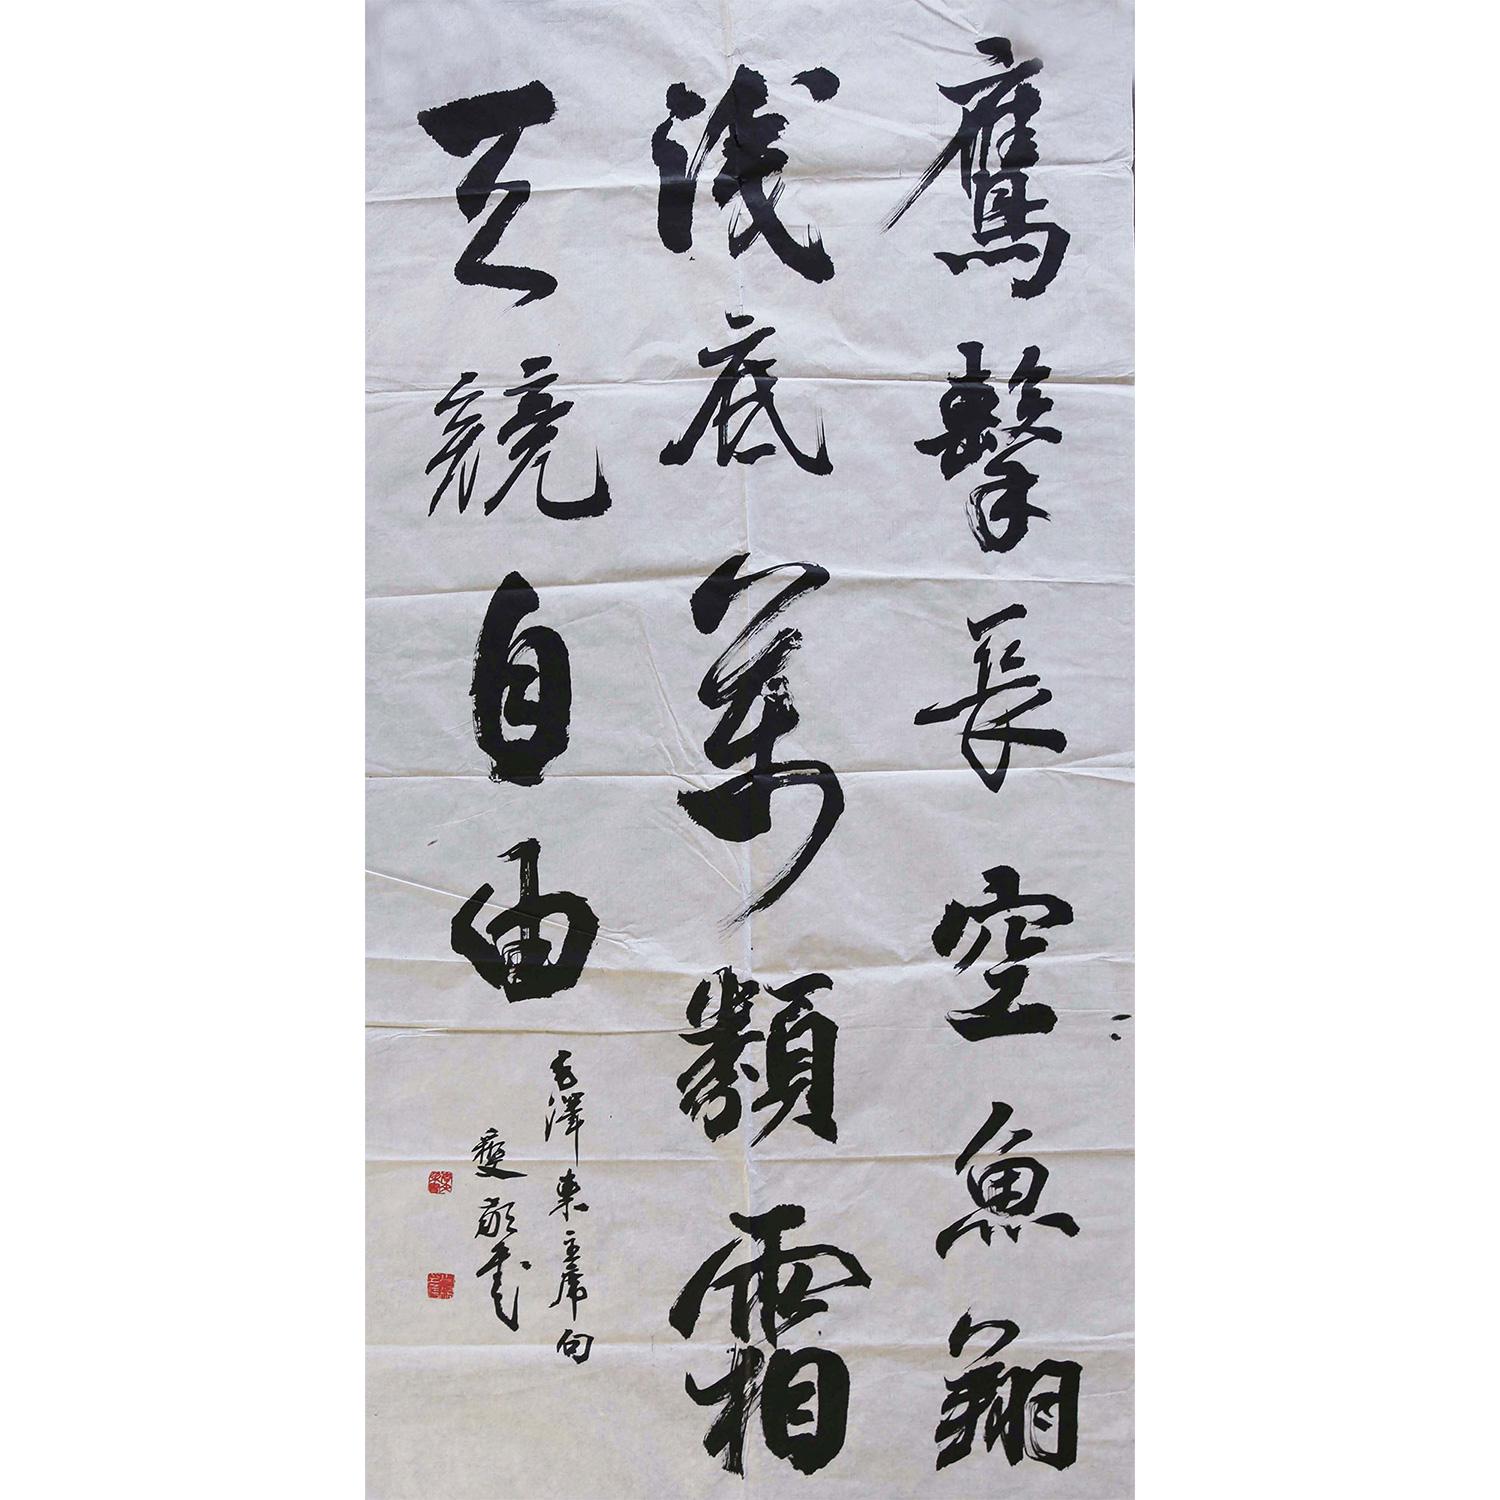 鷹擊長空魚翔
淺底萬類霜
天競自由
毛澤東主席句